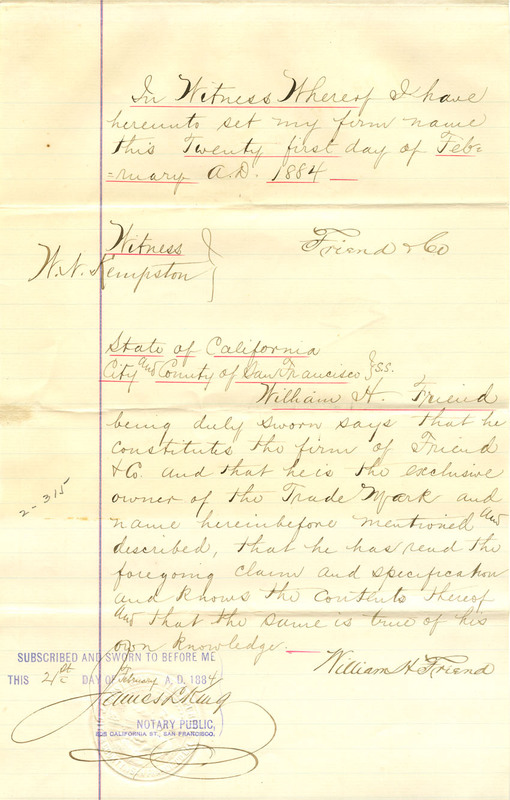 In Witness Whereof I have
hereunto set my firm name
this Twenty first day of Feb=
=ruary A.D. 1884 —
Witness } Friend & Co
W. N. Kempston
State of California
City and County of San Francisco, } ss.
William H. Friend
being duly sworn says that he
constitutes the firm of Friend
& Co. and that he is the exclusive
owner of the Trade Mark and
name hereinbefore mentioned and
described, that he has read the
foregoing claim and specification
and knows the contents thereof
and that the same is true of his
own knowledge —
William H Friend
2-315
SUBSCRIBED AND SWORN TO BEFORE ME
THIS 21st DAY OF February A. D. 1884
James L King
NOTARY PUBLIC,
CALIFORNIA ST., SAN FRANCISCO.